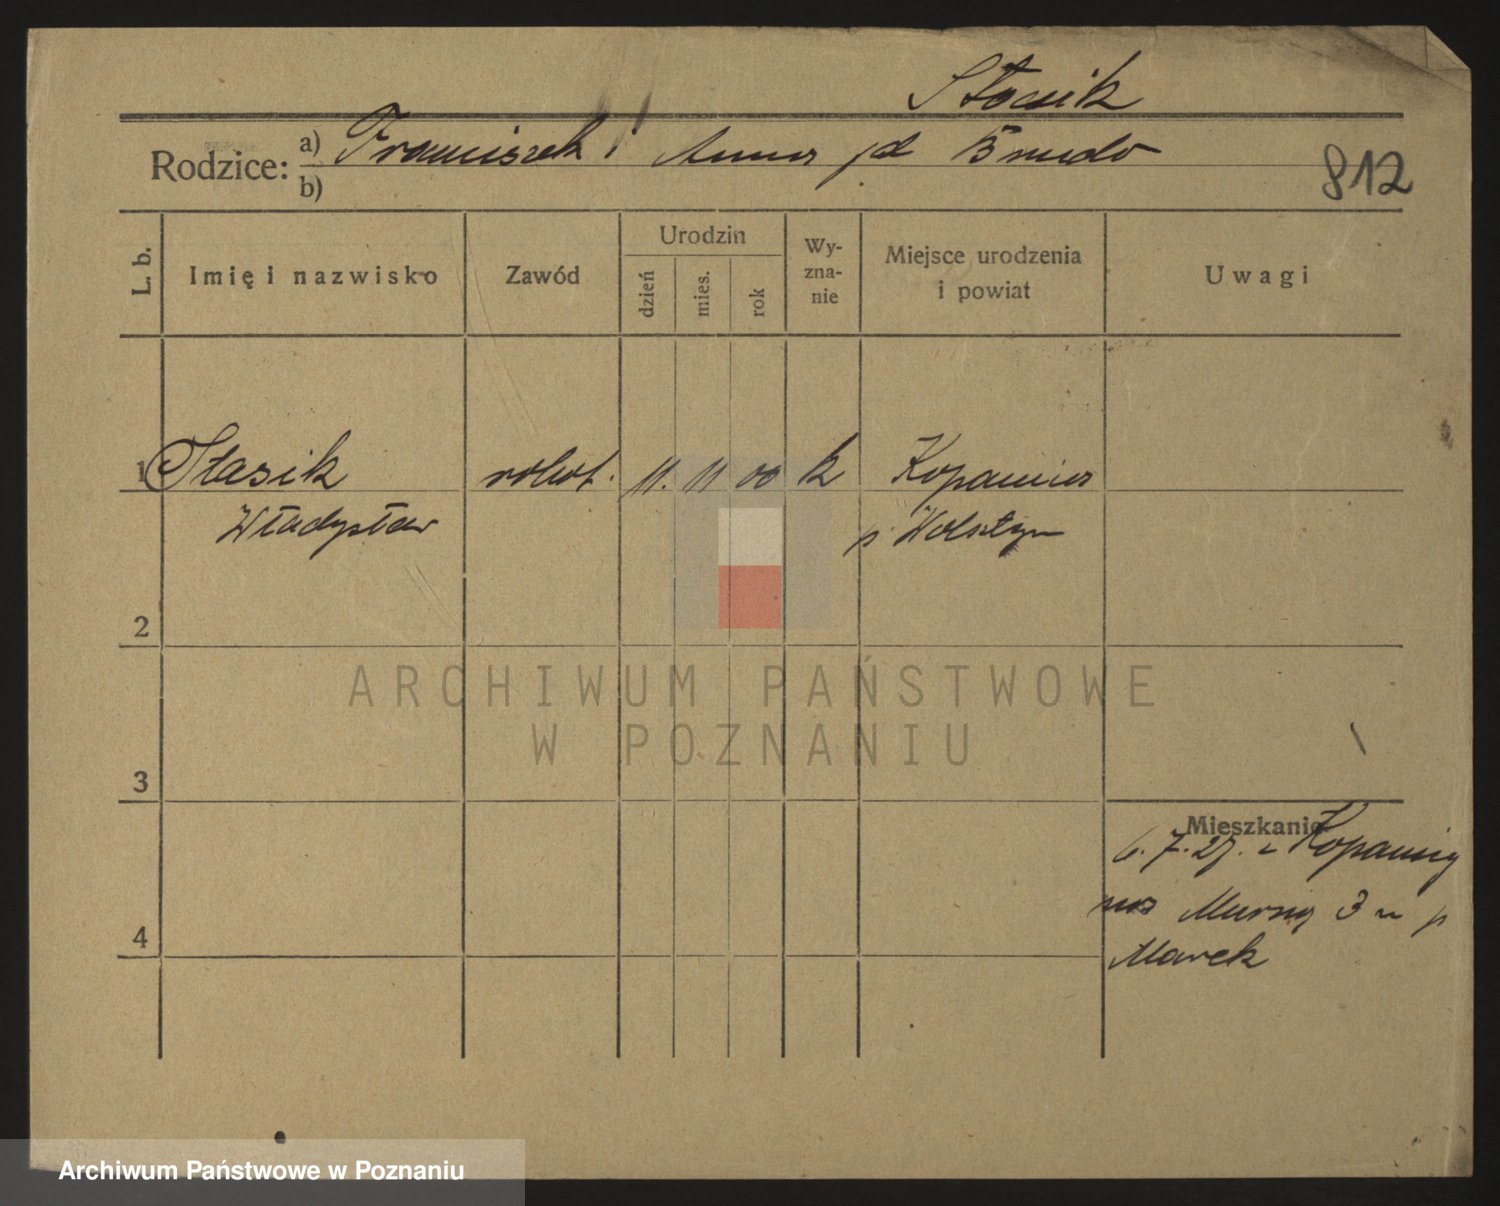 Stasik
Rodzice: a) Franciszek i Anna
b)
812
L. b. Imię i nazwisko Zawód Urodzin dzień mies. rok Wy-zna-nie Miejsce urodzenia i powiat Uwagi
1 Stasik robot. 11. 11 00 k Kopanica
Władysław p Wolsztyn
2
ARCHIWUM PAŃSTWOWE
W POZNANIU
3
Mieszkanie
6.7.27. z Kopanicy
na 3 u p
Marek
4
Archiwum Państwowe w Poznaniu